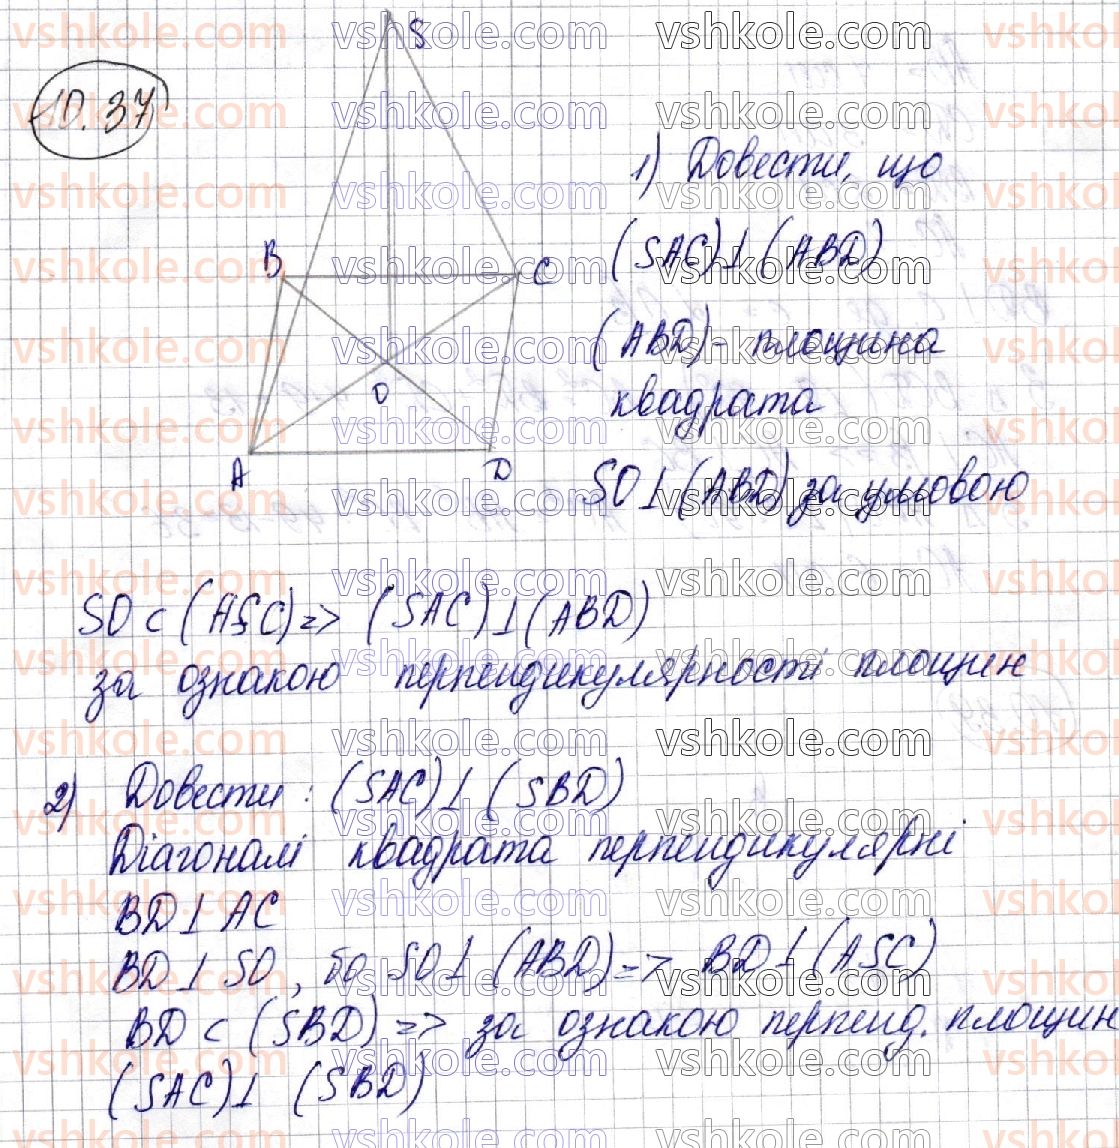 10.37
S
B
C
O
A
D
1) Довести, що
(SAC)⊥(ABD)
(ABD)- площина
квадрата
SO⊥(ABD) за умовою
SO⊂(ASC)=> (SAC)⊥(ABD)
за ознакою перпендикулярності площин
2) Довести: (SAC)⊥(SBD)
Діагоналі квадрата перпендикулярні
BD⊥AC
BD⊥SO, бо SO⊥(ABD)=> BD⊥(ASC)
BD⊂(SBD)=> за ознакою перпенд. площин
(SAC)⊥ (SBD)
vshkole.com